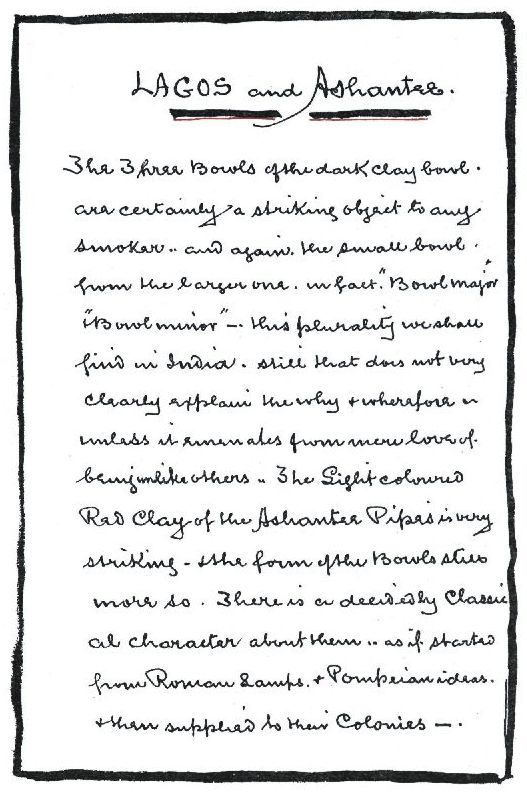 LAGOS and Ashantee.
The Three Bowls of the dark clay bowl.
are certainly a striking object to any
smoker.. and again. the small bowl.
from the larger one. in fact. "Bowl major"
"Bowl minor" - this plurality we shall
find in India. still that does not very
clearly explain the why & wherefore
unless it emenates from mere love of
being unlike others.. The Light coloured
Red Clay of the Ashantee Pipes is very
striking - & the form of the Bowls still
more so. There is a decidedly Classic
al character about them.. as if started
from Roman Lamps. & Pompeian ideas.
& then supplied to their Colonies -.